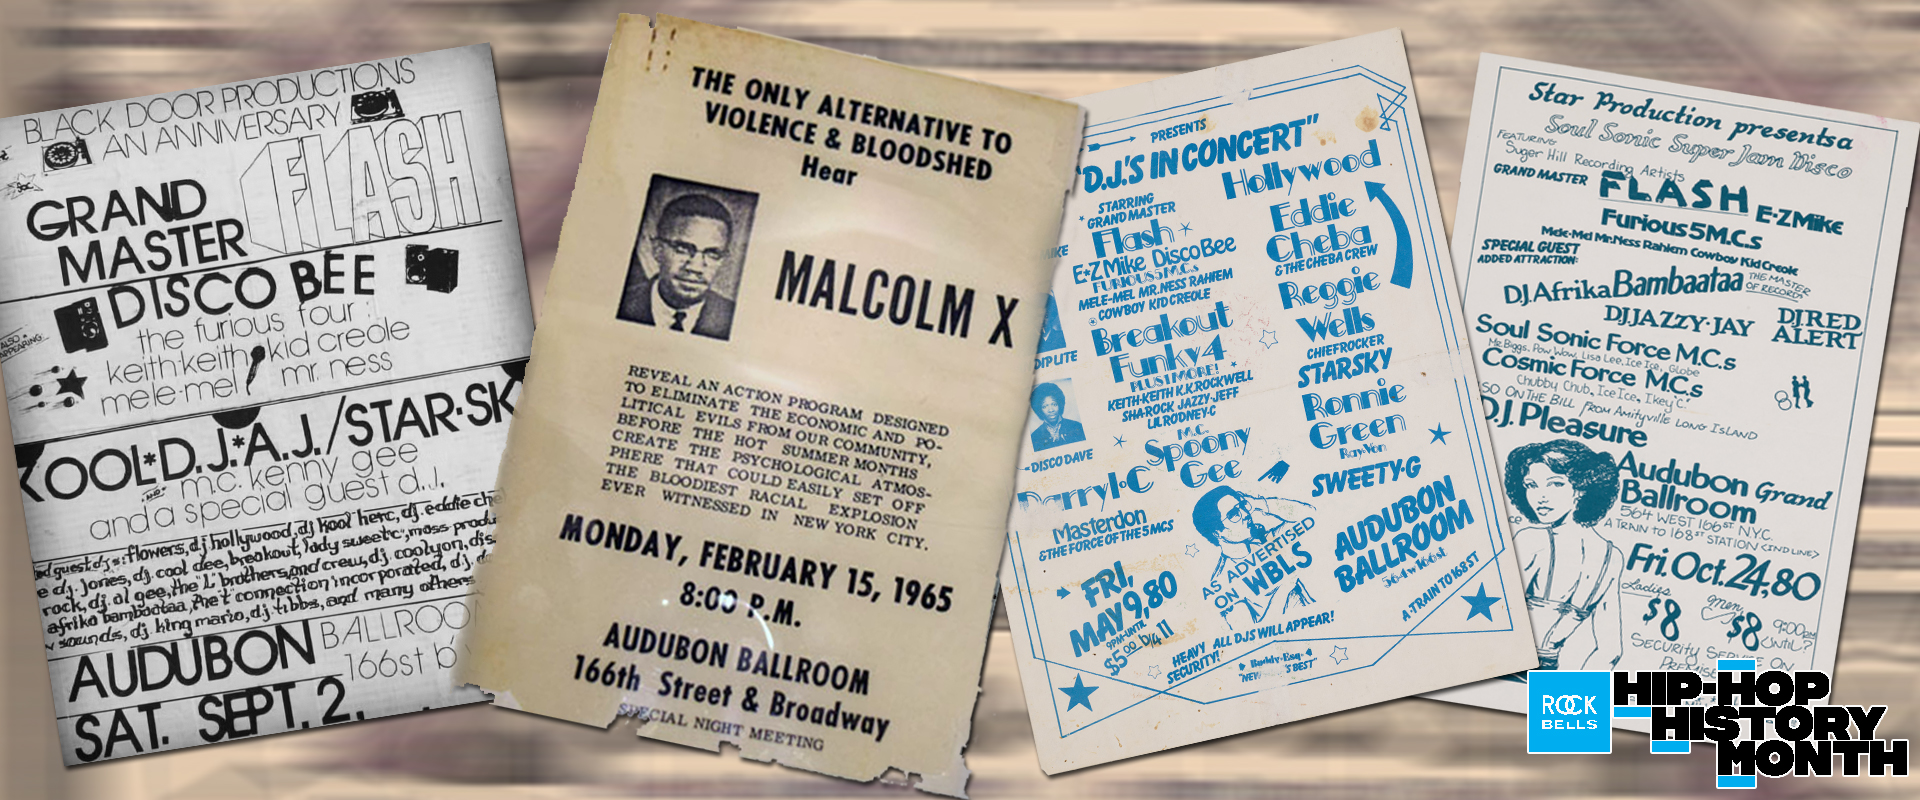 BLACK DOOR PRODUCTIONS
AN ANNIVERSARY
GRAND
MASTER
FLASH
DISCO BEE
ALSO
APPEARING
the furious four
keith·keith kid creole
mele-mel mr. ness
KOOL*D.J.*A.J./STAR·SK
m.c. kenny gee
and a special guest d.j.
guest dj's: flowers, d.j hollywood, dj kool herc, d.j. eddie che
d.j. jones, d.j. cool dee, breakout, lady sweet"c", mass produ
rock, d.j. al gee, the "L" brothers, and crew, d.j. coolyon, dis
afrika bambaataa, the t connection incorporated, d.j.
sounds, d.j. king mario, d.j. tibbs, and many others
AUDUBON BALLROO
166st b
SAT. SEPT. 2,
THE ONLY ALTERNATIVE TO
VIOLENCE & BLOODSHED
Hear
MALCOLM X
REVEAL AN ACTION PROGRAM DESIGNED
TO ELIMINATE THE ECONOMIC AND PO-
LITICAL EVILS FROM OUR COMMUNITY,
BEFORE THE HOT SUMMER MONTHS
CREATE THE PSYCHOLOGICAL ATMOS-
PHERE THAT COULD EASILY SET OFF
THE BLOODIEST RACIAL EXPLOSION
EVER WITNESSED IN NEW YORK CITY.
MONDAY, FEBRUARY 15, 1965
8:00 P.M.
AUDUBON BALLROOM
166th Street & Broadway
SPECIAL NIGHT MEETING
PRESENTS
"D.J.'S IN CONCERT"
STARRING
GRAND MASTER
Flash
E*Z Mike Disco Bee
FURIOUS 5 M.C.s
MELE-MEL MR. NESS RAHIEM
COWBOY KID CREOLE
Breakout
Funky 4
PLUS 1 MORE!
KEITH-KEITH K.K. ROCKWELL
SHA-ROCK JAZZY-JEFF
LIL RODNEY-C
DIPLITE
-DISCO DAVE
Hollywood
Eddie
Cheba
& THE CHEBA CREW
Reggie
Wells
CHIEF ROCKER
STARSKY
Ronnie
Green
RayVon
SWEETY·G
M.C.
Spoony
Gee
Darryl·C
Masterdon
& THE FORCE OF THE 5 MCS
AS ADVERTISED
ON WBLS
AUDUBON
BALLROOM
564 w 166 st
A-TRAIN TO 168 ST
FRI,
MAY 9, 80
9PM-UNTIL
$5.00 b/4 11
HEAVY
SECURITY!
ALL DJS WILL APPEAR!
Buddy-Esq.
"NEW
"BEST"
Star Production presentsa
Soul Sonic Super Jam Disco
FEATURING
Suger Hill Recording Artists
GRAND MASTER FLASH E·Z Mike
Furious 5 M.C.s
Mele-Mel Mr. Ness Rahiem Cowboy Kid Creole
SPECIAL GUEST
ADDED ATTRACTION:
D.J. Afrika Bambaataa THE MASTER
OF RECORDS
DJ.JAZZY·JAY
DJ.RED
ALERT
Soul Sonic Force M.C.s
Mr. Biggs, Pow Wow, Lisa Lee, Ice Ice, Globe
Cosmic Force M.C.s
Chubby Chub, Ice Ice, Ikey 'C'
SO ON THE BILL FROM AMITYVILLE LONG ISLAND
D.J. Pleasure
Audubon Grand
Ballroom
564 WEST 166 ST N.Y.C.
A TRAIN TO 168 ST STATION <IND LINE>
Fri. Oct. 24, 80
Ladies
$8
Men
$8
9:00pm
UNTIL?
SECURITY SERVICE ON
ROCK
BELLS
HIP-HOP
HISTORY
MONTH